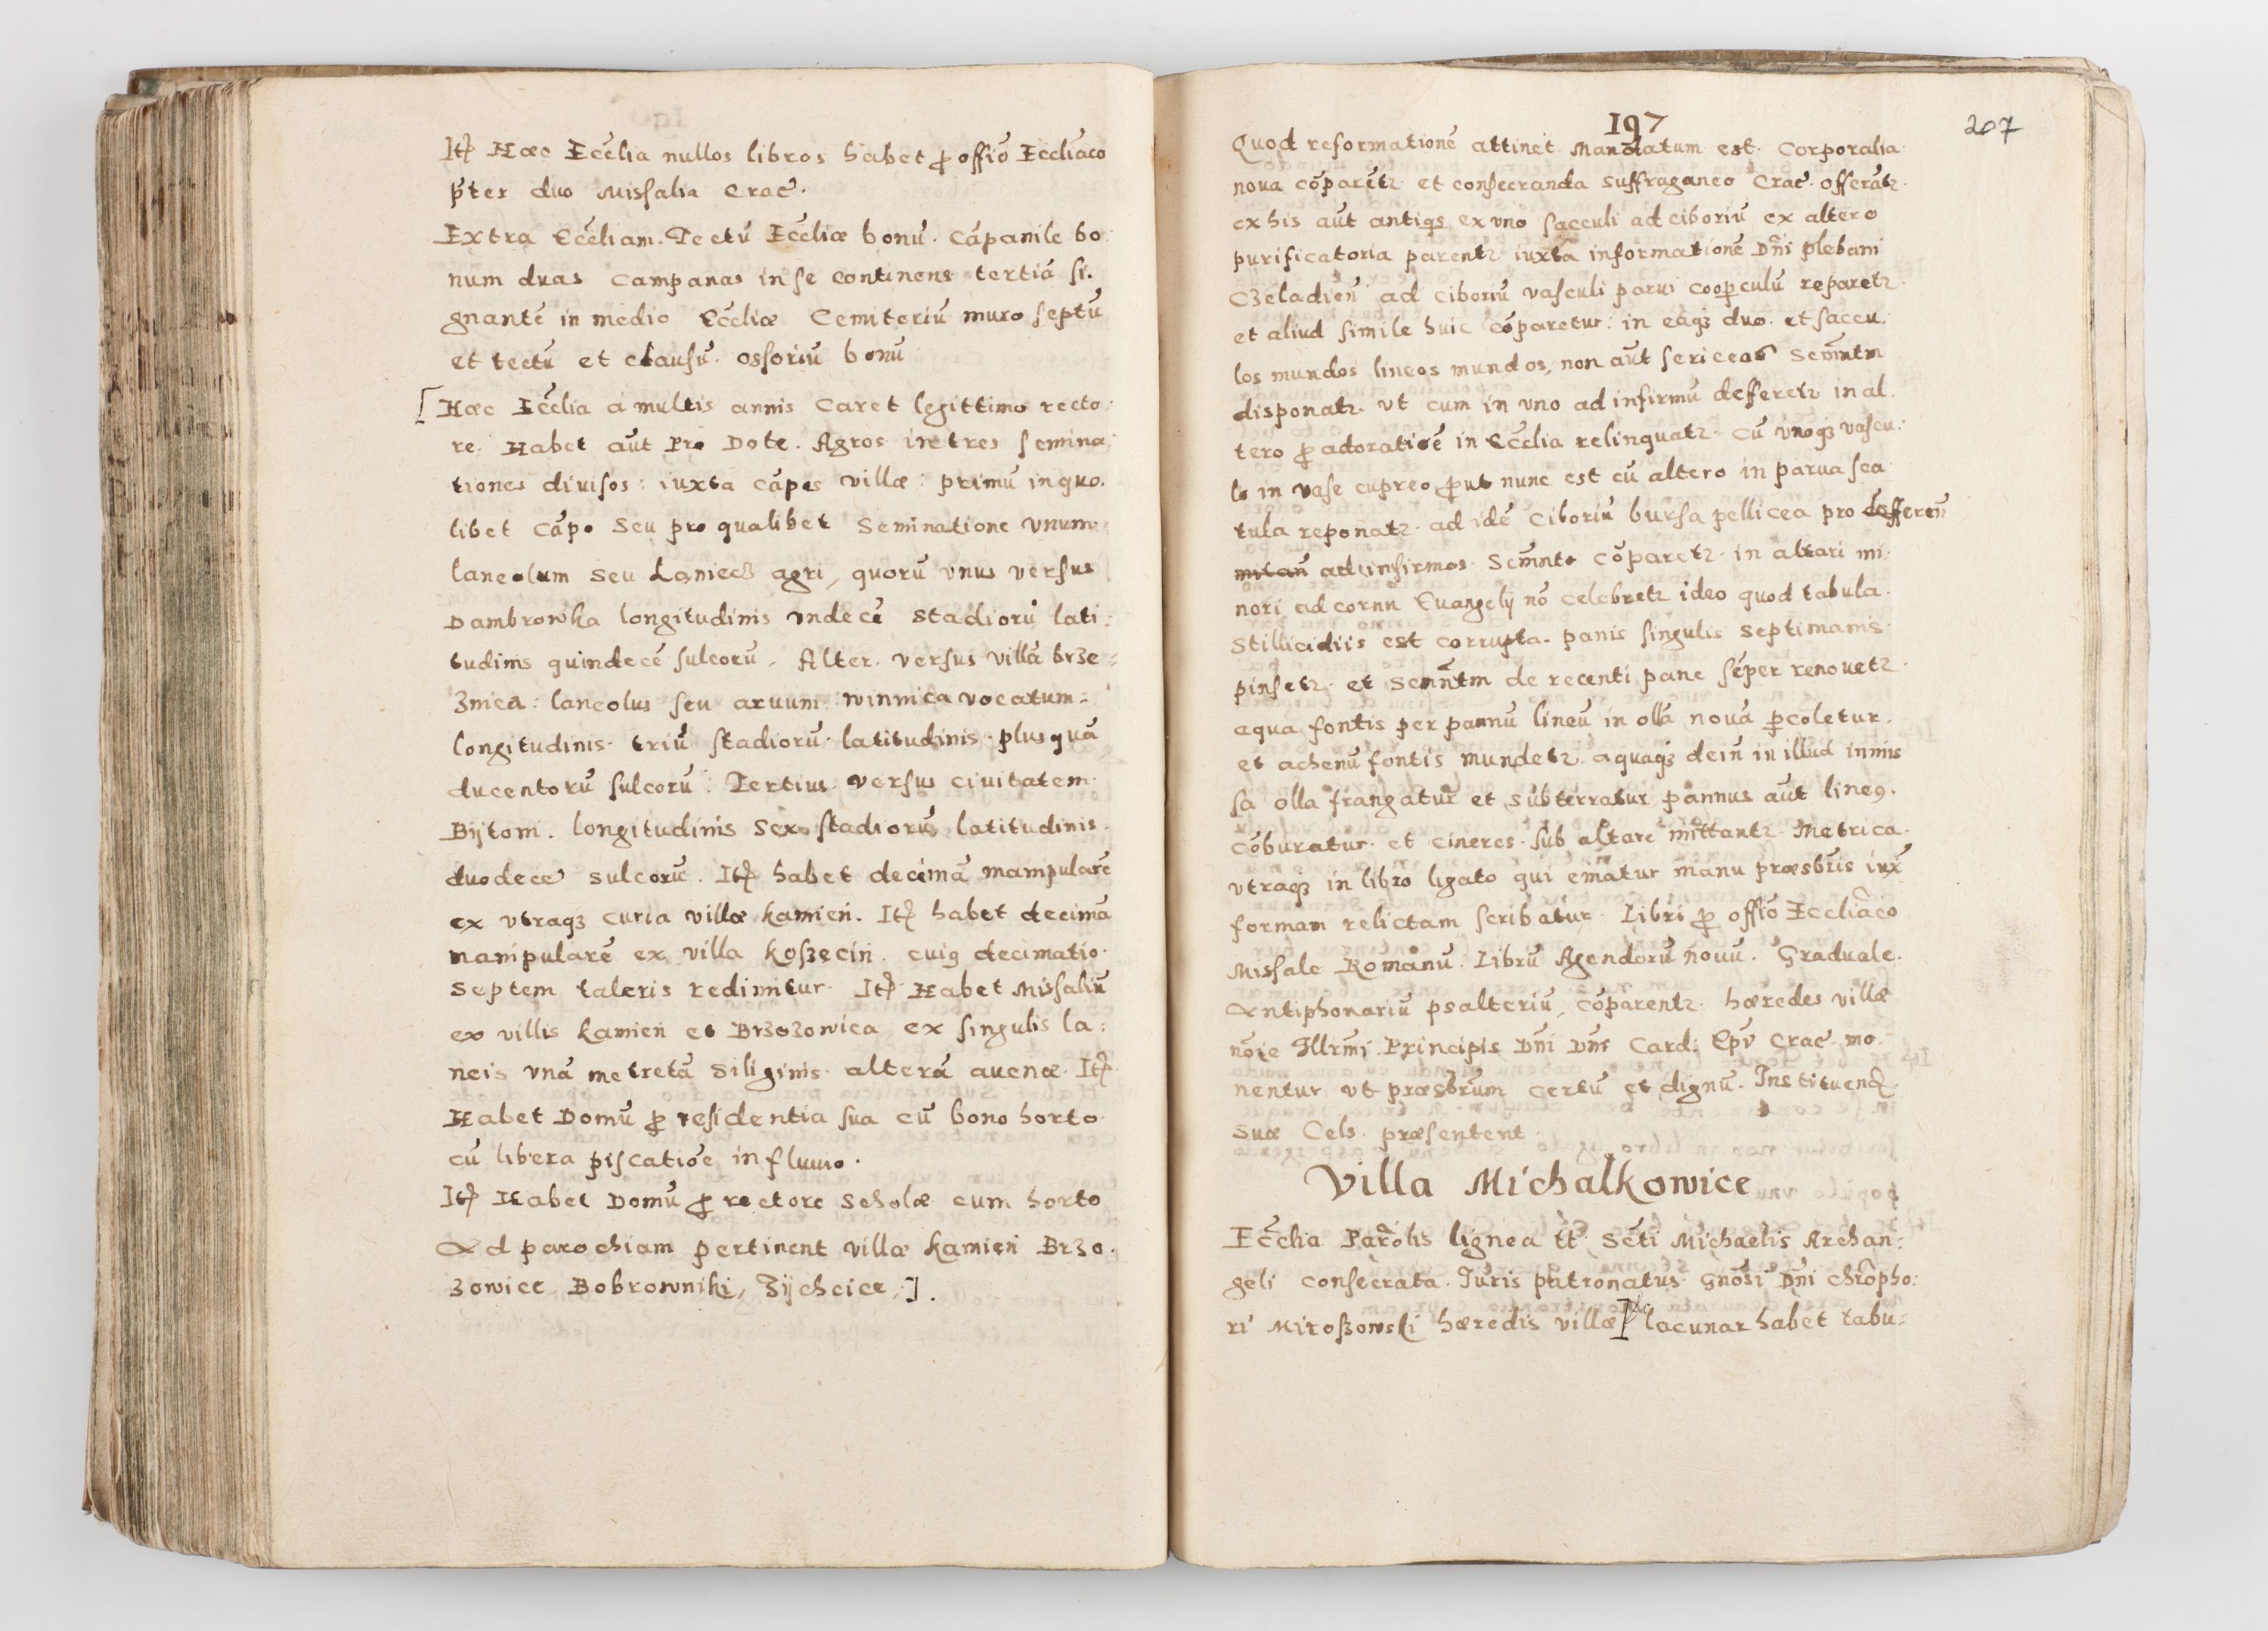 Itę Hæc Ecc̄lia nullos libros habet ꝓ offīo Eccliāco
p̄ter duo Missalia Crac̄.
Extra Ecc̄liam. Tectū Ecc̄liæ bonū. Cāpanile bo
num duas campanas in se continens tertiā si.
gnantē in medio Ecc̄liæ Cemiteriū muro septū
et tectū et clausū. ossoriū bonū
[Hæc Ecc̄lia a multis annis caret legittimo recto.
re. Habet aūt Pro Dote. Agros in tres semina
tiones divisos: iuxta cāpos villæ: primū in quo.
libet cāpo seu pro qualibet seminatione vnum
laneolum seu Laniecz agri, quorū vnus versus
Dambrowka longitudinis vndecē stadiorū lati:
tudinis quindecē sulcorū. Alter versus villā brze=
znica: laneolus seu aruum winnica vocatum.
longitudinis triū stadiorū latitudinis plusquā
ducentorū sulcorū: Tertius versus civitatem
Bijtom. longitudinis sex stadiorū latitudinis
duodecē sulcorū. Itę habet decimā manipularē
ex vtraqꝫ curia villæ kamień. Itę habet decimā
manipularē ex villa koszecin. cuiꝯ decimatio
septem taleris redimitur. Itę Habet Missaliū
ex villis kamień et Brzozowica ex singulis la:
neis vnā metretā siliginis alterā avenæ. Itę
Habet Domū ꝓ residentia sua cū bono horto
cū libera piscatiōe in fluuio.
Itę Habet Domū ꝓ rectore scholæ cum horto
Ad parochiam pertinent villæ kamień Brzo.
zowice Bobrowniki, Zijchcice,].
197
207
Quod reformationē attinet Mandatum est. Corporalia
noua cōparētꝛ et consecranda suffraganeo Crac̄. offerātꝛ.
ex his aūt antiqs ex vno sacculi ad ciboriū ex altero
purificatoria parentꝛ iuxta informationē Dn̄i plebani
Czeladien̄ ad ciboriū vasculi parui cooꝑculū reparetꝛ
et aliud simile huic cōparetur: in eaqꝫ duo. et saccu.
los mundos lineos mundos, non aūt sericeas
disponatꝛ vt cum in vno ad infirmū defferetꝛ in al.
tero ꝓ adoratiōe in Ecc̄lia relinquatꝛ. Cū vnoqꝫ vascu.
lo in vase cupreo ꝓut nunc est cū altero in parua sca
tula reponatꝛ. ad idē ciboriū bursa pellicea pro defferen̄
ad infirmos. Scm̄nto cōparetꝛ. in altari mi.
nori ad cornu Euangelij nō celebretꝛ ideo quod tabula.
stillicidiis est corrupta. panis singulis septimanis
pinsetꝛ. et de recenti pane sēper renovetꝛ.
aqua fontis per pannū lineū in olla nova ꝑcoletur.
et ahenū fontis mundetꝛ aquaqꝫ dein̄ in illud inmis
sa olla frangatur et subterratur pannus aūt lineꝯ.
cōburatur et cineres sub altare mittantꝛ. Metrica.
vtraqꝫ in libro ligato qui ematur manu præsb̄ris iux̄
formam relictam scribatur. Libri ꝓ offīo Eccliāco
Missale Romanū. Librū Agendorū novū. Graduale.
Antiphonariū psalteriū, cōparentꝛ. hæredes villæ
nōie Illrm̄i Principis Dn̄i Dn̄i Card: Ep̄i Crac̄. mo.
nentur vt præsb̄rum certū et dignū. Instituend.
suæ Cels. præsentent
Villa Michalkowice
Ecc̄lia Parōlis lignea tt̄ Sc̄ti Michaelis Archan:
geli consecrata. Iuris patronatus Gnōsi Dn̄i Chrōpho:
ri Miroszowski hæredis villæ] lacunar habet tabu=